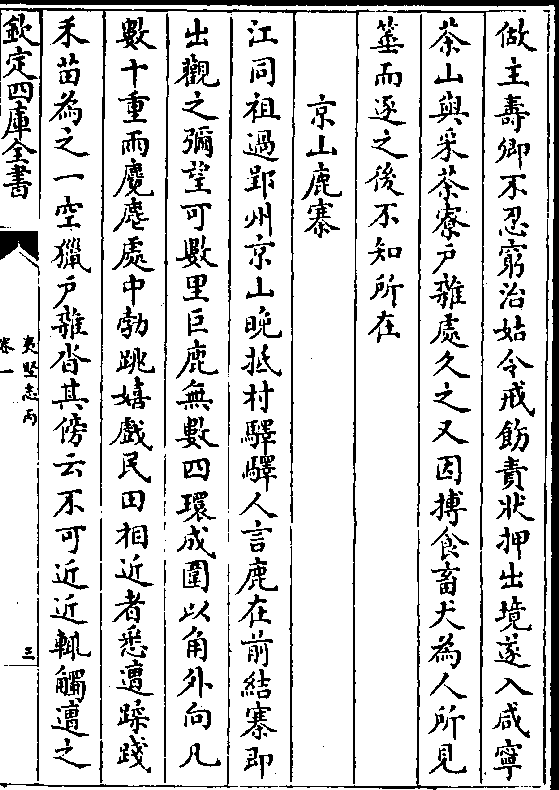 做主壽卿不忍窮治姑令戒飭責狀押出境遂入咸寧
茶山與采茶寮戶雜處久之又因搏食畜犬為人所見
箠而逐之後不知所在
京山鹿寨
江同祖過郢州京山晚抵村驛驛人言鹿在前結寨即
出觀之彌望可數里巨鹿無數四環成圍以角外向凡
數十重而麌麀處中勃跳嬉戲民田相近者悉遭蹂踐
禾苗為之一空獵戶雜沓其傍云不可近近輒觸遭之
欽定四庫全書
夷堅志丙
卷一
三